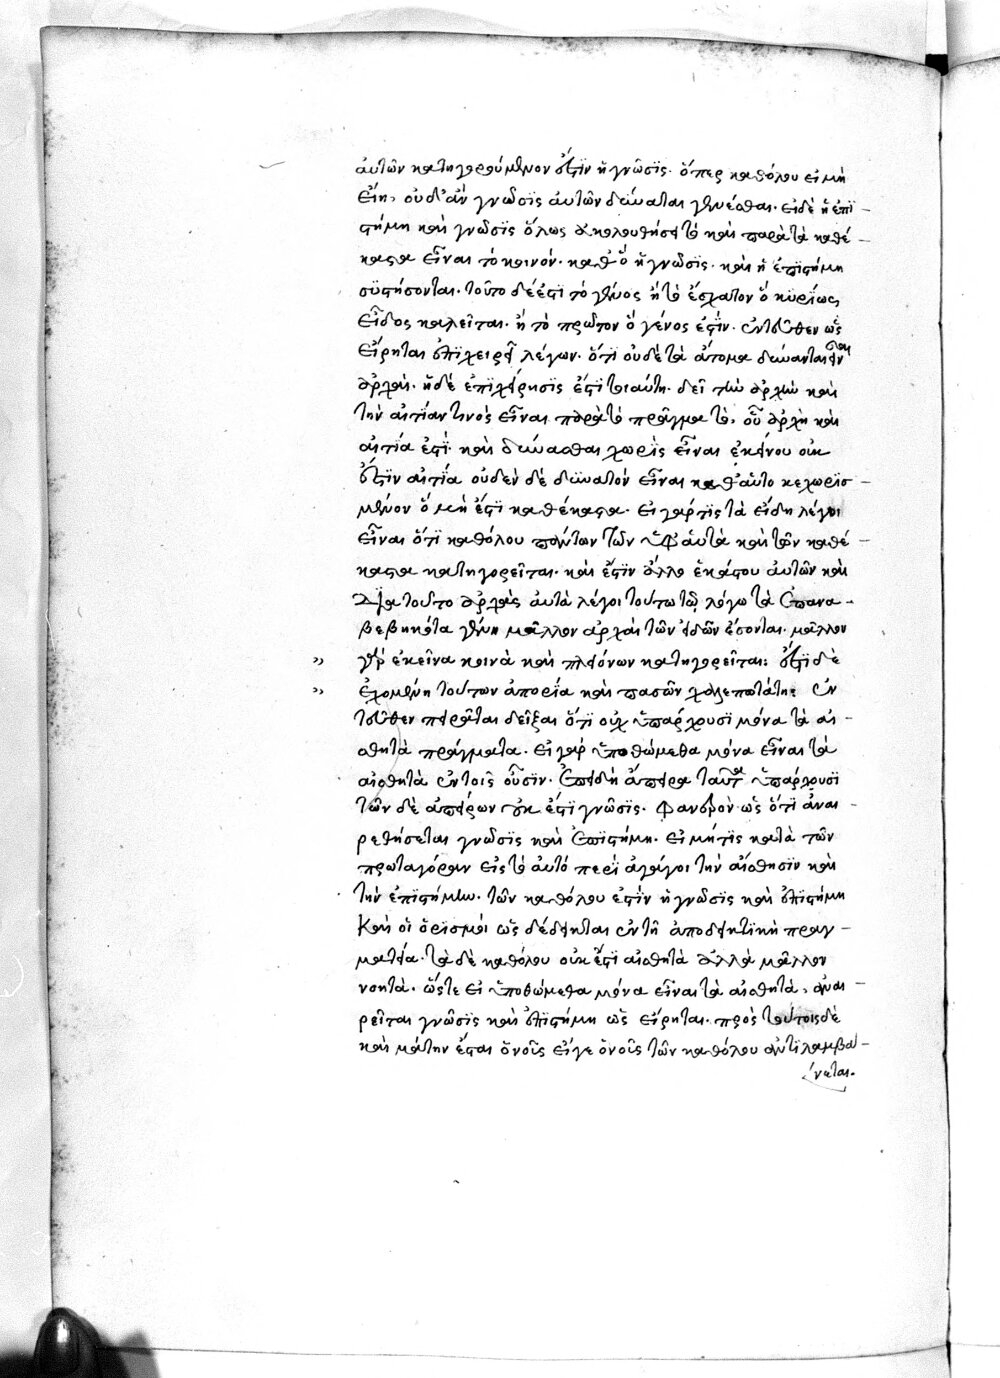 αυτῶν κατηγορούμενον ἐστὶν ἡ γνῶσϊς. ὅπερ καθόλου εἰ μὴ
εἴη, οὐδ' ἂν γνῶσϊς αυτῶν δύναται γενέσθαι. εἰ δὲ ἡ ἐπϊ -
στήμη καὶ γνῶσϊς ὅλως ἀκολουθήσει τὸ καὶ παρὰ τὰ καθέ -
καστα εἶναι τὸ κοινόν. καθ' ὃ ἡ γνῶσϊς. καὶ ἡ ἐπϊστήμη
συστήσονται. τοῦτο δέ ἐστι τὸ γένος ἢ τὸ ἔσχατον ὃ κυρίως
εἶδος καλεῖται. ἢ τὸ πρῶτον ὃ γένος ἐστΐν. ἐντεῦθεν ὡς
εἴρηται ἐπϊχειρεῖ λέγων. ὅτι οὐδὲ τὰ ἄτομα δύνανται εἶναι
ἀρχαὶ. ἡ δὲ ἐπιχείρησις ἐστὶ τοιαύτη. δεῖ τὴν ἀρχὴν καὶ
τὴν αἰτίαν τινὸς εἶναι παρὰ τὸ πρᾶγμα τὸ, οὗ ἀρχὴ καὶ
αἰτία ἐστΐ. καὶ δύνασθαι χωρὶς εἶναι ἐκείνου οὗ
ἐστὶν αἰτΐα οὐδὲν δὲ δυνατὸν εἶναι καθ' αὑτὸ κεχωρϊσ -
μένον ὃ μὴ ἐστϊ καθέκαστα. εἰ γάρ τις τὰ εἴδη λέγοι
εἶναι ὅτι καθόλου πάντων τῶν ὑφ' αὑτὰ καὶ τῶν καθέ -
καστα κατηγορεῖται. καὶ ἔστϊν ἄλλο ἑκάστου αὐτῶν καὶ
διὰ τοῦτο ἀρχὰς αὐτὰ λέγοι τούτω τῷ λόγω τὰ ἐπανα -
βεβηκότα γένη μᾶλλον ἀρχαὶ τῶν εἰδῶν ἔσονται. μᾶλλον
γὰρ ἐκεῖνα κοινὰ καὶ πλειόνων κατηγορεῖται: ἔστϊ δὲ
ἐχομένη τούτων ἀπορΐα καὶ πασῶν χαλεπωτάτη: ἐν
τεῦθεν πειρᾶται δεῖξαι ὅτι οὐχ ὑπάρχουσϊ μόνα τὰ αἰ -
σθητὰ πράγματα. εἰ γὰρ ὑποθώμεθα μόνα εἶναι τὰ
αἰσθητὰ ἐν τοῖς οὖσϊν. ἐπειδὴ ἄπειρα ταῦτα ὑπάρχουσϊ
τῶν δὲ ἀπείρων οὐκ ἔστϊ γνῶσϊς. φανερὸν ὡς ὅτι ἀναι -
ρεθήσεται γνῶσϊς καὶ ἐπϊστήμη. εἰ μή τϊς κατὰ τῶν
πρωταγόραν εἰς τὸ αὐτό περϊ ἀγάγοι τὴν αἴσθησϊν καὶ
τὴν ἐπϊστήμην. τῶν καθόλου ἐστΐν ἡ γνῶσϊς καὶ ἐπϊστήμη
Καὶ οἱ ὁρϊσμοὶ ὡς δέδεικται ἐν τῇ ἀποδεικτϊκῆ πραγ -
ματεία. τὰ δὲ καθόλου οὐκ ἔστϊ αἰσθητὰ ἀλλὰ μᾶλλον
νοητὰ. ὥστε εἰ ὑποθώμεθα μόνα εἶναι τὰ αἰσθητὰ, ἀναι -
ρεῖται γνῶσϊς καὶ ἐπϊστήμη ὡς εἴρηται. πρὸς τούτοις δὲ
καὶ μάτην ἔσται ὁ νοῦς εἴγε ὁ νοῦς τῶν καθόλου ἀντϊλαμβά -
νεται.